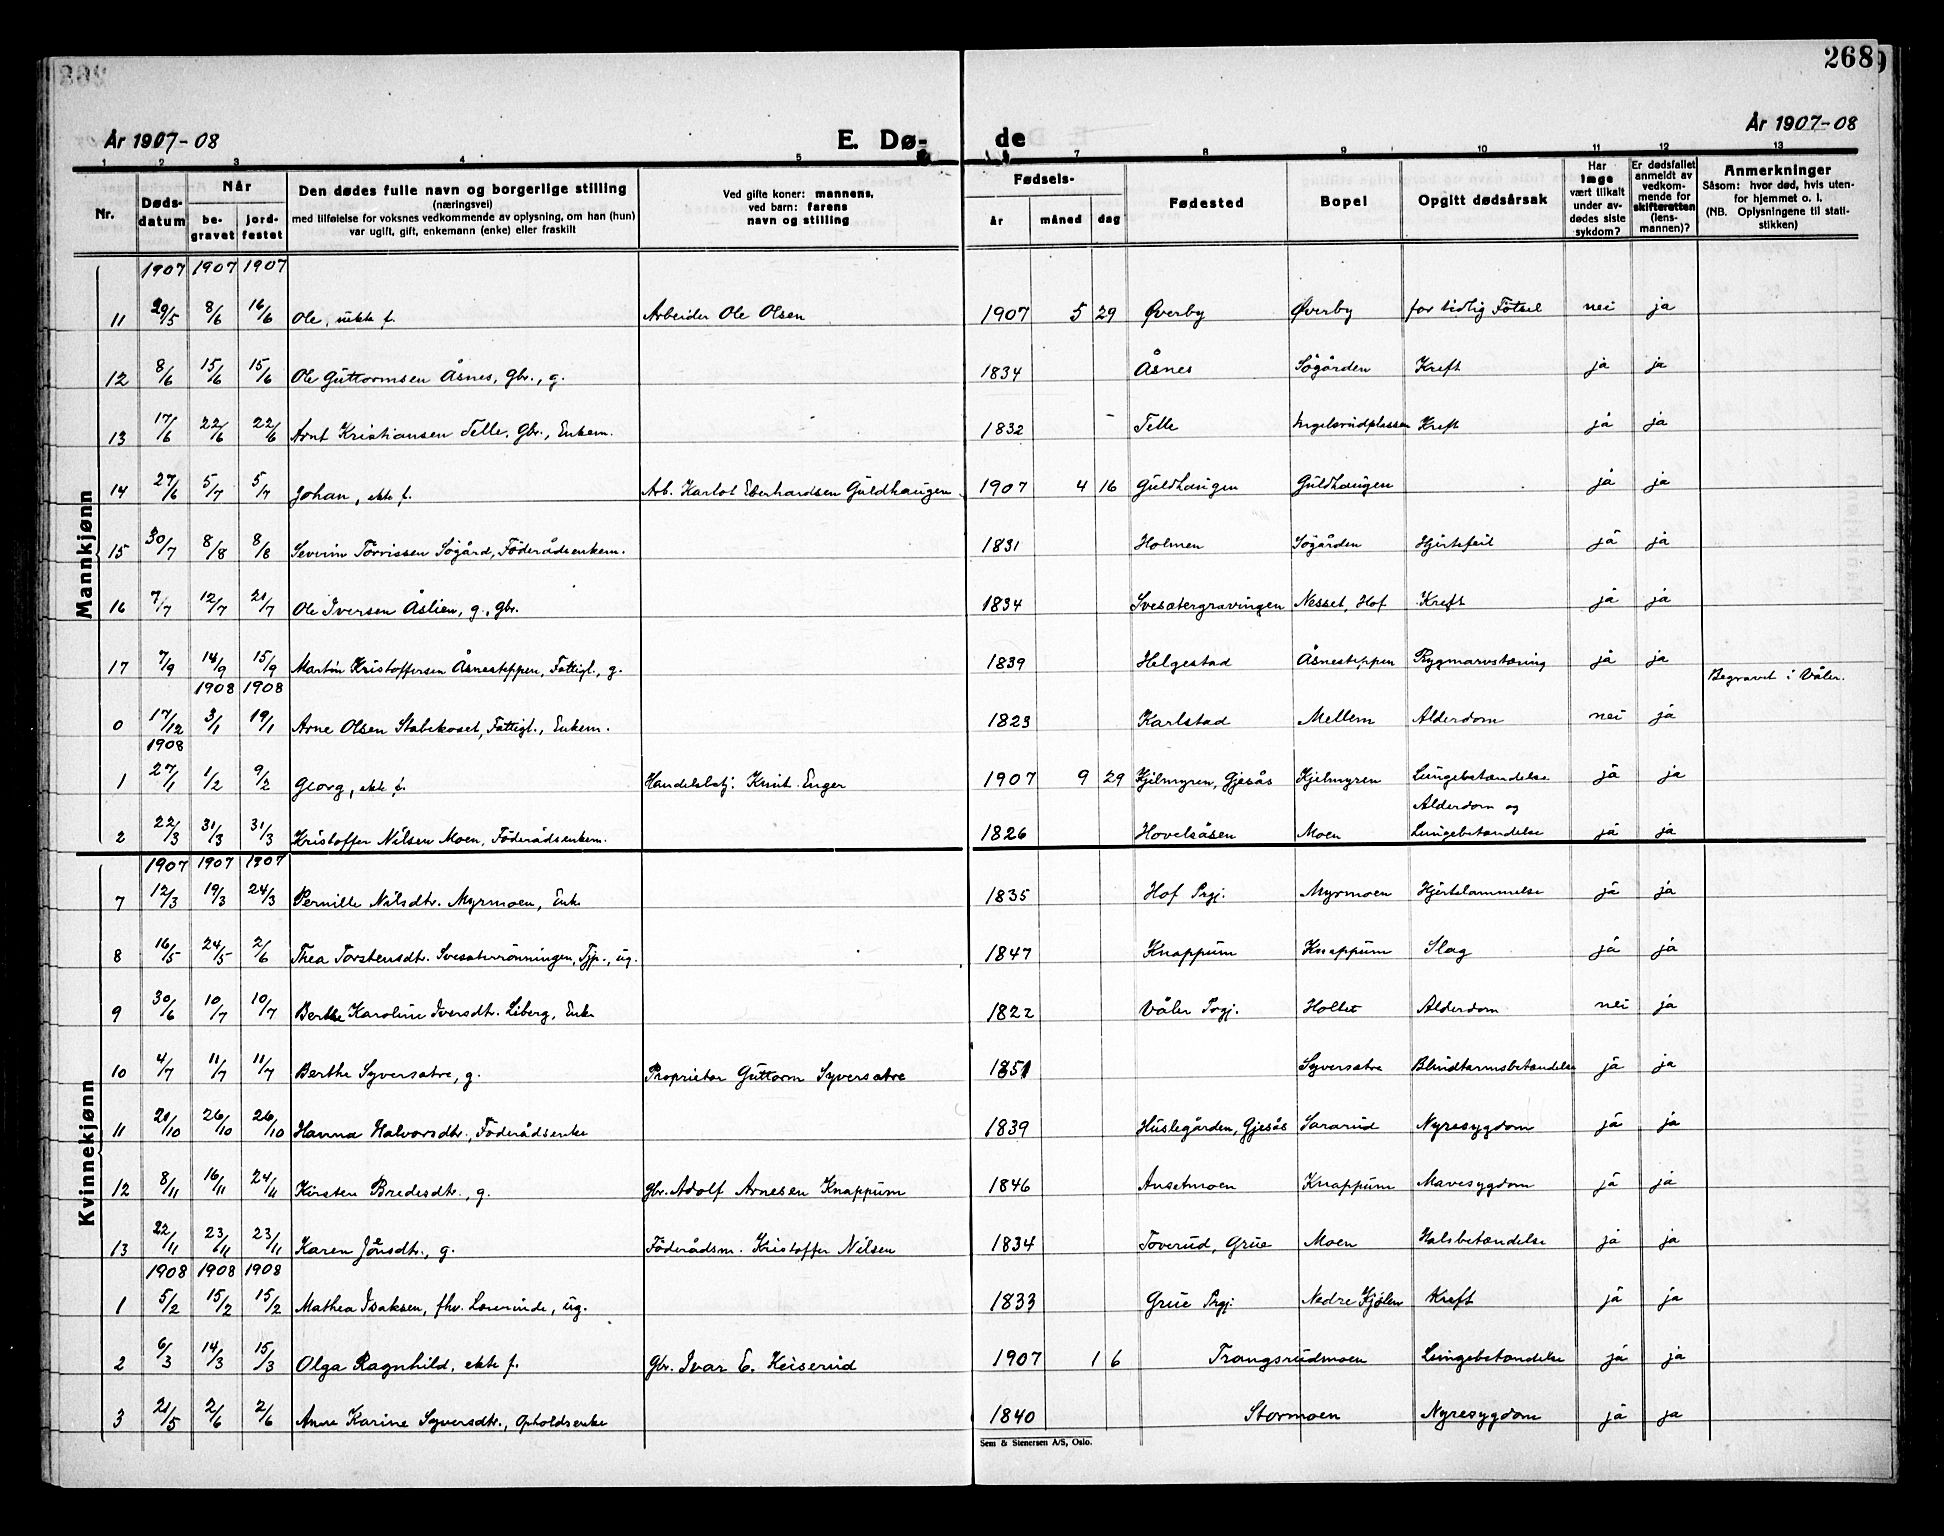 268
År 1907-08 E. Dø- de År 1907-08
1 2 3 4 5 7 8 9 10 11 12 13
Nr. Dødsdatum Når begravet jordfestet Den dødes fulle navn og borgerlige stilling (næringsvei) med tilføielse for voksnes vedkommende av oplysning, om han (hun) var ugift, gift, enkemann (enke) eller fraskilt Ved gifte koner: mannens, ved barn: farens navn og stilling Fødsels- år måned dag Fødested Bopel Opgitt dødsårsak Har læge vært tilkalt under avdødes siste sykdom? Er dødsfallet anmeldt av vedkommende for skifteretten (lensmannen)? Anmerkninger Såsom: hvor død, hvis utenfor hjemmet o. l. (NB. Oplysningene til statistikken)
Mannkjønn
1907 1907 1907
11 29/5 8/6 16/6 Ole, uekte f. Arbeider Ole Olsen 1907 5 29 Øverby Øverby for tidlig Fötsel nei ja
12 8/6 15/6 15/6 Ole Guttormsen Åsnes, Gbr., g. 1834 Åsnes Sögården Kreft ja ja
13 17/6 22/6 22/6 Arnt Kristiansen Telle, Gbr., Enkem. 1832 - Telle Ingelsrudplassen Kreft ja ja
14 27/6 5/7 5/7 Johan, ekte f. Arb. Karlot Eberhardsen Guldhaugen 1907 4 16 Guldhaugen Guldhaugen ja ja
15 30/7 8/8 8/8 Severin Törrissen Sögård, Föderådsenkem. 1831 Holmen Sögården Hjertefeil ja ja
16 7/7 12/7 21/7 Ole Iversen Åslien, g., Gbr. 1834 Svesætergravingen Nesset, Hof Kreft ja ja
17 7/9 14/9 15/9 Martin Kristoffersen Åsnesteppen, Fattigl., g. 1839 Helgestad Åsnesteppen Rygmarvstæring ja ja
1908 1908 Begravet i Våler.
0 17/12 3/1 19/1 Arne Olsen Stabekoset, Fattigl., Enkem. 1823 Karlstad Mellem Alderdom nei ja
1908
1 27/1 1/2 9/2 Georg, ekte f. Handelsbetj. Knut Enger 1907 9 29 Kjelmyren, Gjesås Kjelmyren Lungebetændelse ja ja
Alderdom og
2 22/3 31/3 31/3 Kristoffer Nilsen Moen, Föderådsenkem. 1826 Hovelsåsen Moen Lungebetændelse ja ja
Kvinnekjønn
1907 1907 1907
7 12/3 19/3 24/3 Pernille Nilsdtr. Myrmoen, Enke 1835 Hof Prgj. Myrmoen Hjertelammelse ja ja
8 16/5 24/5 2/6 Thea Torstensdtr. Svesæterrönningen, Tjp., ug. 1847 Knappum Knappum Slag ja ja
9 30/6 10/7 10/7 Berthe Karoline Iversdtr. Liberg, Enke 1822 Våler Prgj. Holtet Alderdom nei ja
10 4/7 11/7 11/7 Berthe Syversætre, g. Proprietær Guttorm Syversætre 1851 Syversætre Blindtarmsbetændelse ja ja
11 21/10 26/10 26/10 Hanna Halvorsdtr., Föderådsenke 1839 Huslegården, Gjesås Sararud Nyresygdom ja ja
12 8/11 16/11 24/11 Kirsten Bredesdtr., g. Gbr. Adolf Arnesen Knappum 1846 Ansetmoen Knappum Mavesygdom ja ja
13 22/11 23/11 23/11 Karen Jensdtr., g. Föderådsm. Kristoffer Nilsen 1834 Toverud, Grue Moen Halsbetændelse ja ja
1908 1908 1908
1 5/2 15/2 15/2 Mathea Isaksen, fhv. Lærerinde, ug. 1833 Grue Prgj. Nedre Kjölen Kreft ja ja
2 6/3 14/3 15/3 Olga Ragnhild, ekte f. Gbr. Ivar E. Keiserud 1907 1 6 Trangsrudmoen Lungebetændelse ja ja
3 21/5 2/6 2/6 Anne Karine Syversdtr., Opholdsenke 1840 Stormoen Nyresygdom ja ja
Sem & Stenersen A/S, Oslo.